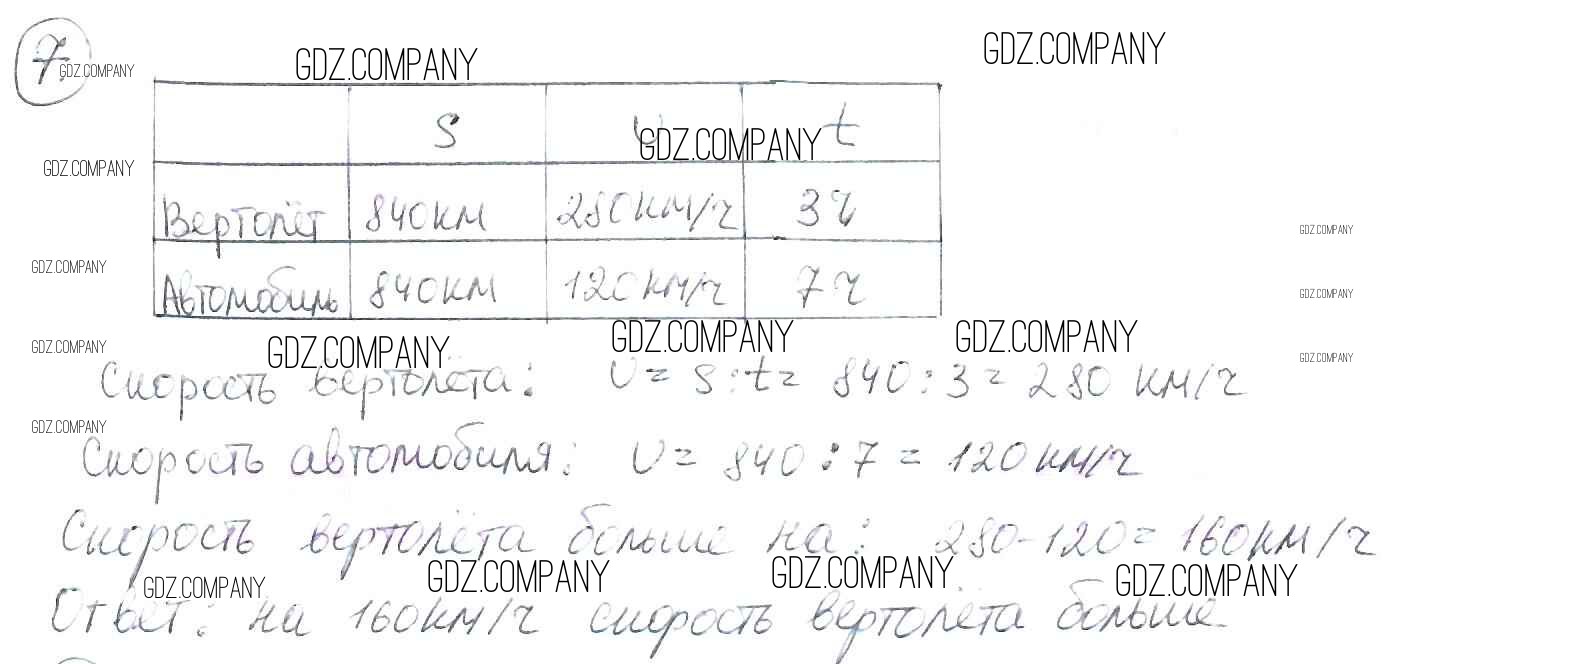 7.
GDZ.COMPANY
GDZ.COMPANY
GDZ.COMPANY
S υ t
GDZ.COMPANY
GDZ.COMPANY
Вертолёт 840км 280км/ч 3ч
GDZ.COMPANY
GDZ.COMPANY
Автомобиль 840км 120км/ч 7ч
GDZ.COMPANY
GDZ.COMPANY
GDZ.COMPANY
GDZ.COMPANY
GDZ.COMPANY
GDZ.COMPANY
Скорость вертолёта: υ = S:t = 840:3 = 280 км/ч
GDZ.COMPANY
Скорость автомобиля: υ = 840:7 = 120км/ч
Скорость вертолёта больше на: 280-120=160км/ч
GDZ.COMPANY
GDZ.COMPANY
GDZ.COMPANY
GDZ.COMPANY
Ответ: на 160км/ч скорость вертолёта больше